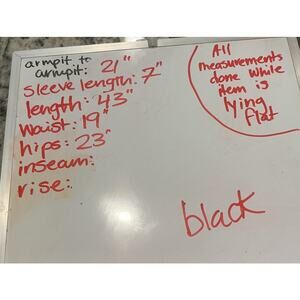 armpit to
armpit: 21"
Sleeve length: 7"
length: 43"
Waist: 19"
hips: 23"
inseam:
rise:
All
measurements
done while
item is
lying
flat
black